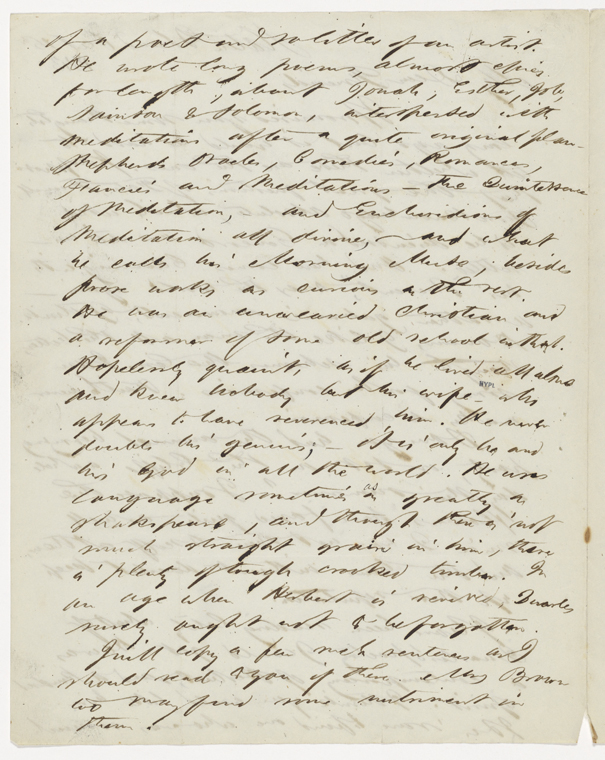 of a poet and so little of an artist.
He wrote long poems, almost epics
for length, about Jonah, Esther, Job,
Samson & Solomon, interspersed with
meditations after a quite original plan—
Shepherds Oracles, Comedies, Romances,
Fancies and Meditations — the Quintessence
of Meditation, and Enchiridions of
Meditation all divine,— and what
he calls his Morning Muse; besides
prose works as curious as the rest.
He was an unwearied Christian and
a reformer of some old school withal.
Hopelessly quaint, as if he lived all alone
and knew nobody but his wife, who
appears to have reverenced him. He never
doubts his genius;— it is only he and
his God in all the world. He uses
language sometimes as greatly as
Shakespeare, and though there is not
much straight grain in him, there
is plenty of tough crooked timber. In
an age when Herbert is revived, Quarles
surely ought not to be forgotten.
I will copy a few such sentences as I
should read to you if there. Mrs Brown
too may find some nutriment in
them.
NYPL